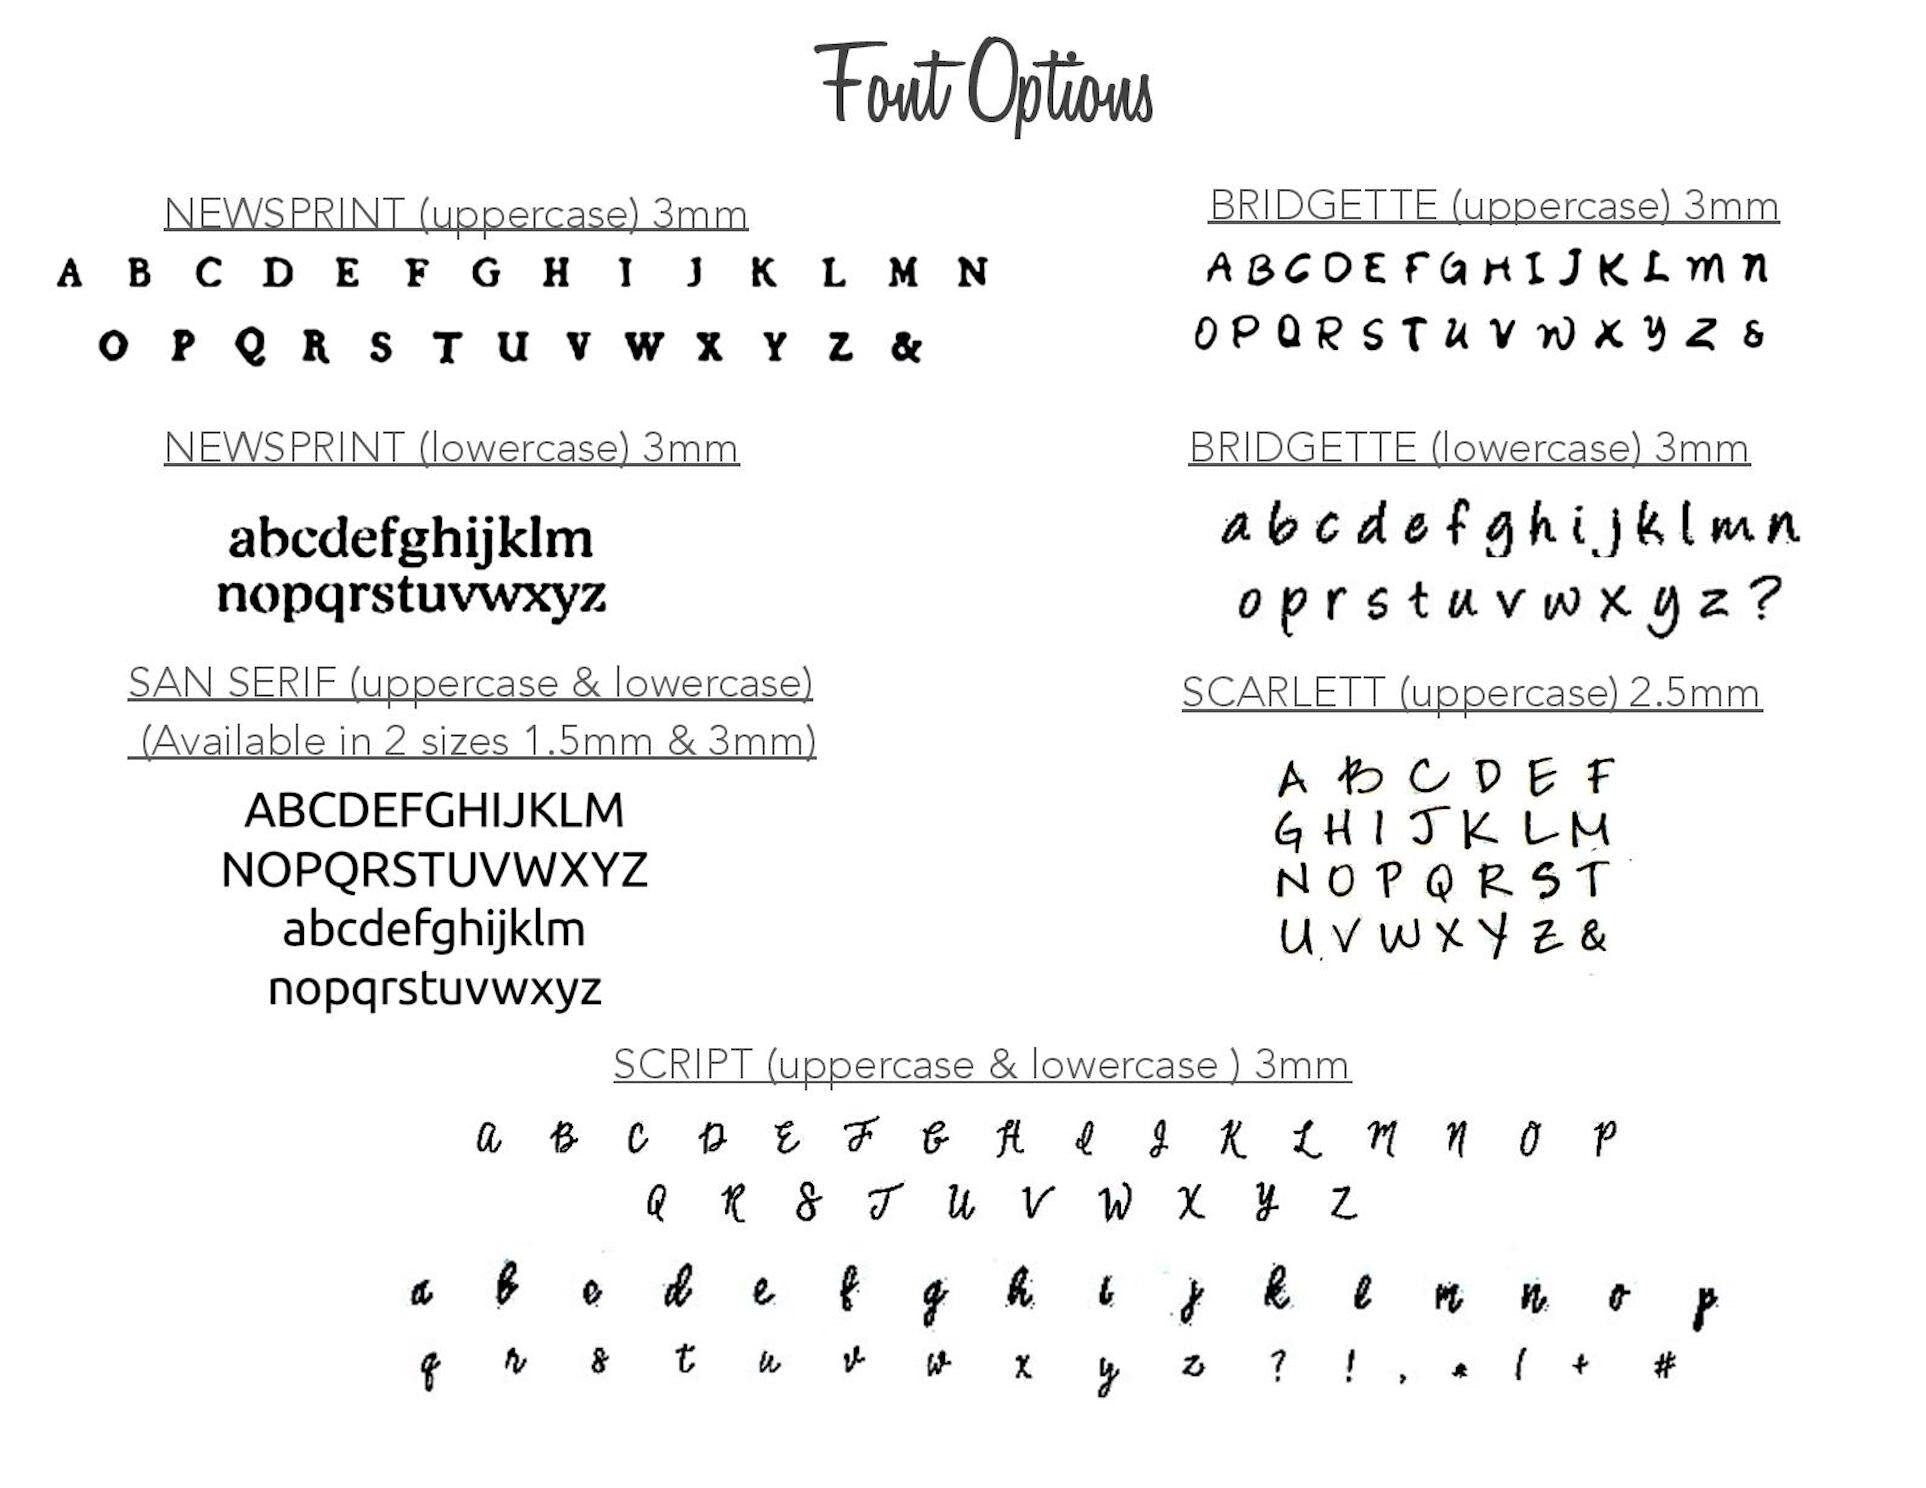 Font Options
NEWSPRINT (uppercase) 3mm
A B C D E F G H I J K L M N
O P Q R S T U V W X Y Z &
NEWSPRINT (lowercase) 3mm
abcdefghijklm
nopqrstuvwxyz
SAN SERIF (uppercase & lowercase)
(Available in 2 sizes 1.5mm & 3mm)
ABCDEFGHIJKLM
NOPQRSTUVWXYZ
abcdefghijklm
nopqrstuvwxyz
BRIDGETTE (uppercase) 3mm
A B C D E F G H I J K L M N
O P Q R S T U V W X Y Z &
BRIDGETTE (lowercase) 3mm
a b c d e f g h i j k l m n
o p r s t u v w x y z ?
SCARLETT (uppercase) 2.5mm
A B C D E F
G H I J K L M
N O P Q R S T
U V W X Y Z &
SCRIPT (uppercase & lowercase ) 3mm
A B C D E F G H I J K L M N O P
Q R S T U V W X Y Z
a b c d e f g h i j k l m n o p
q r s t u v w x y z ? ! , * ( + #